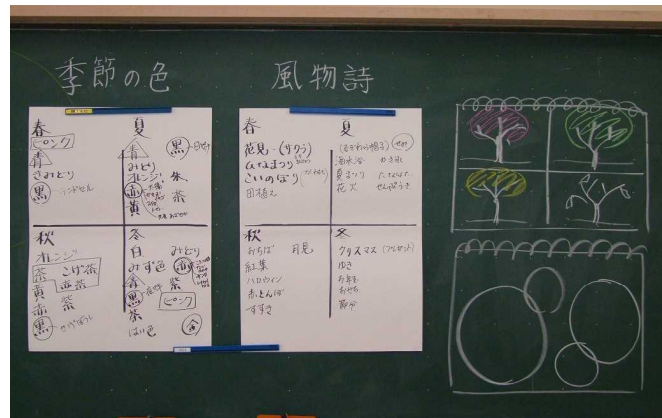 季節の色
春
ピンク
青
きみどり
黒 ランドセル
夏
青
黒 日やけ
みどり
オレンジ
朱
赤
茶
黄
秋
オレンジ
茶 こげ茶
黄 赤茶
赤 紫
黒
冬
白 みどり
みず色 赤
青 紫
黒 ピンク
茶
はい色
風物詩
春
花見 (サクラ)
ひなまつり
こいのぼり
田植え
夏
(むぎわら帽子)
海水浴 かき氷
夏まつり たなばた
花火 せんぷうき
秋
おちば 月見
紅葉
ハロウィン
赤とんぼ
すすき
冬
クリスマス (プレゼント)
ゆき
お年玉
おせち
節分